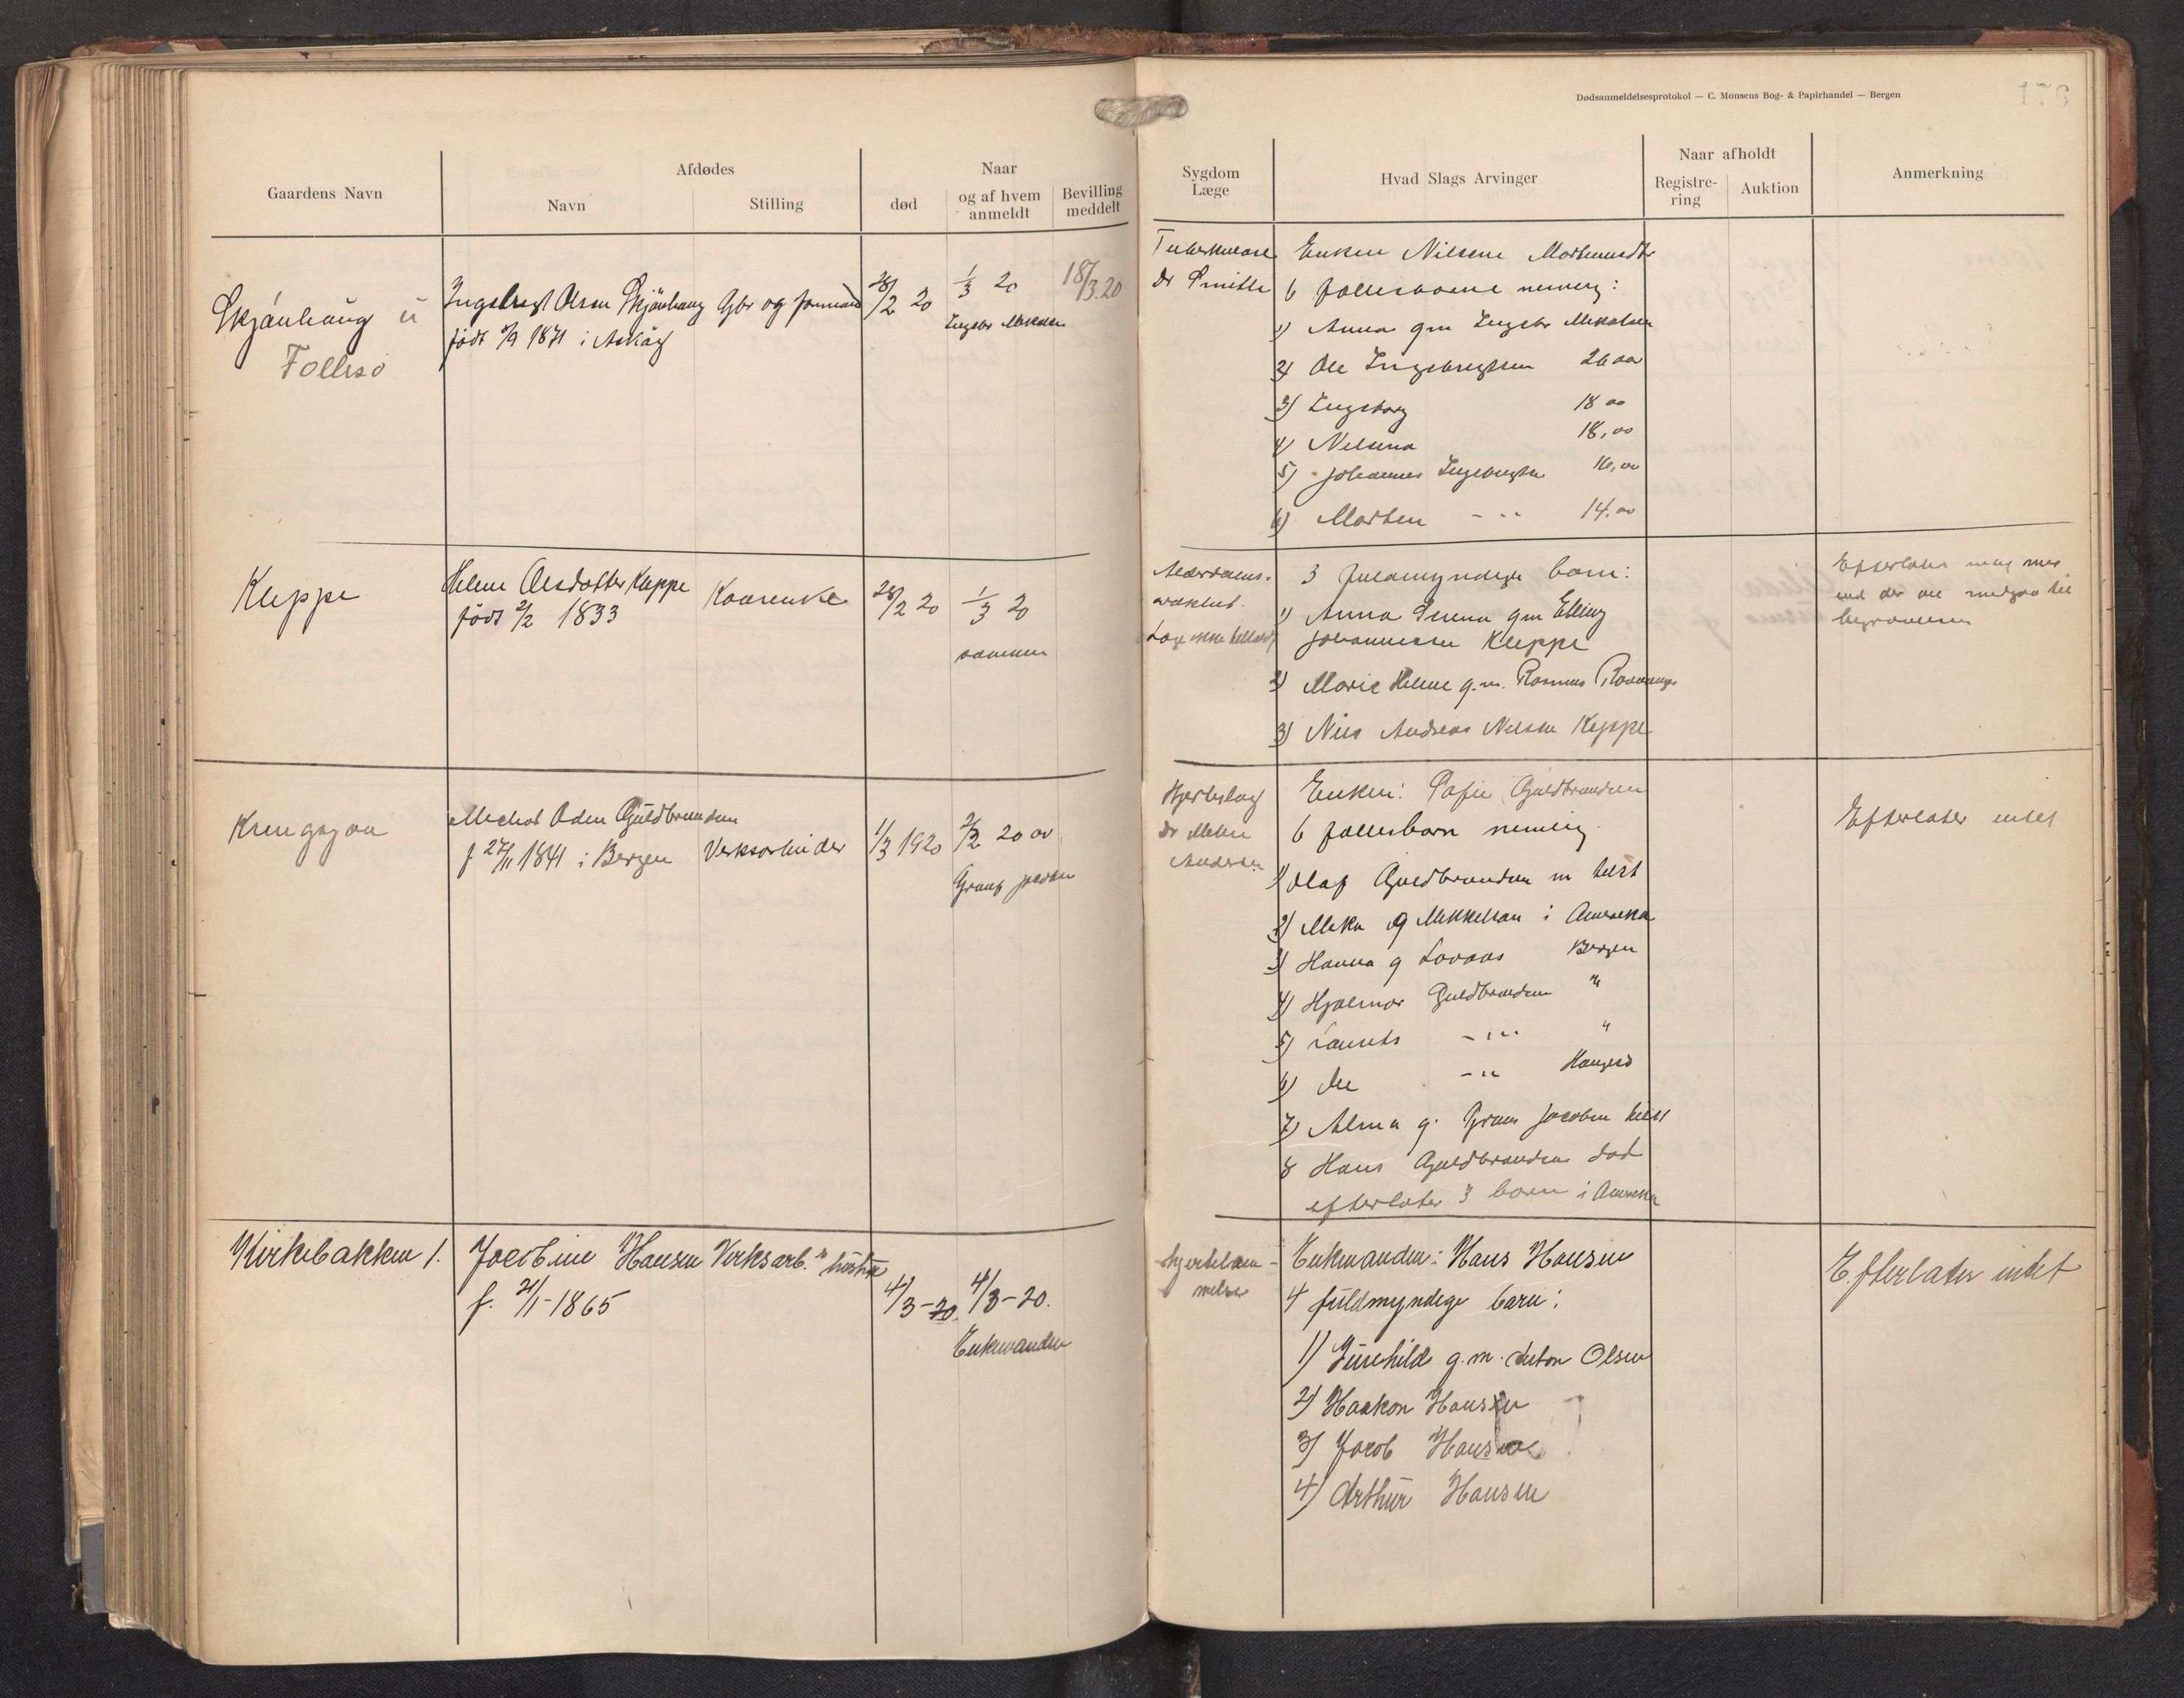 Dødsanmeldelsesprotokol — C. Monsens Bog- & Papirhandel — Bergen
Gaardens Navn
Afdødes
Navn
Stilling
Naar
død
og af hvem anmeldt
Bevilling meddelt
Sygdom
Læge
Hvad Slags Arvinger
Naar afholdt
Registre-
ring
Auktion
Anmerkning
Skjånhaug
Follesö
Ingebregt Olsen Skjånhaug Gbr og
født 1871 i Askøy
28/2 20
1/3 20
Ingebr Mikalsen
18/3.20
Tuberkulose
Dr Smith
Enken Nilsine Mortensdtr
6 fællesbarne nemlig:
1) Anna gm Ingebr Mikalsen
2) Ole Ingebregtsen 26 aar
3) Ingeborg 18 aar
4) Nilsina 18 aar
5) Johannes Ingebregtsen 16 aar
6) Morten - " 14 aar
Kleppe
Helene Olsdatter Kleppe
født 2/2 1833
Kaarenke
28/2 20
1/3 20
sønnen
Alderdoms-
svakhet
Læge ikke
3 fuldmyndige barn:
1) Anna Serena gm Elling
Johannessen Kleppe
2) Marie Helene g.m. Rasmus
3) Nils Andreas Nilsen Kleppe
Efterlater neg mer
end der vil medgaa til
begravelsen
Kringsjaa
Michal Oden Guldbrandsen
f 27/11 1841 i Bergen
Verksarbeider
1/3 1920
2/3 20
Jacobsen
Hjerteslag
Dr
Andersen
Enken: Sofie Guldbrandsen
6 fællesbarn nemlig
1) Olaf Guldbrandsen
2) Mika g Mikkelsen i Amerika
3) Hanna g Bergen
4) Hjalmar Guldbrandsen "
5) Laurits - " - "
6) Ole - "
7) Alma g. Jacobsen
8 Hans Guldbrandsen død
efterlater 3 barn i Amerika
Efterlater intet
Kirkebakken 1.
Jacobine Hansen Verksarb.s hustru
f. 21/1-1865
4/3-20.
4/3-20.
Enkemanden
Hjertelam-
melse
Enkemanden: Hans Hansen
4 fuldmyndige barn:
1) Gunhild g.m. Anton Olsen
2) Haakon Hansen
3) Jacob Hansen
4) Arthur Hansen
Efterlater intet